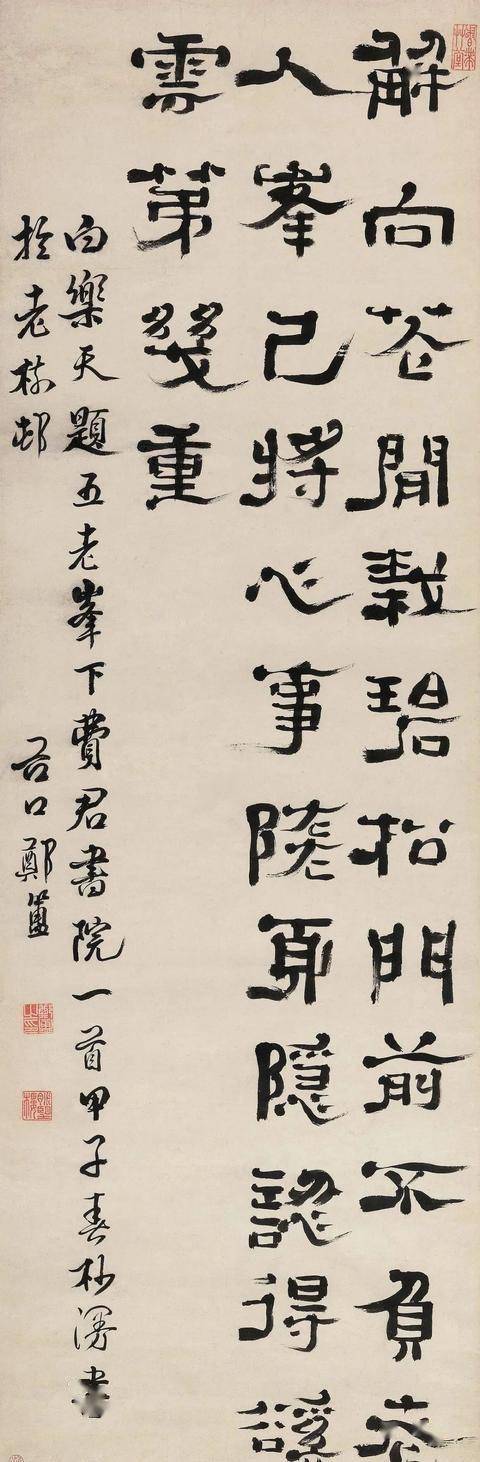 解向花閒栽碧松門前不負老
人峯已將心事隨身隱認得谿
雲第幾重
白樂天題五老峯下費君書院一首甲子春杪漫書
於老邨 谷口鄭簠